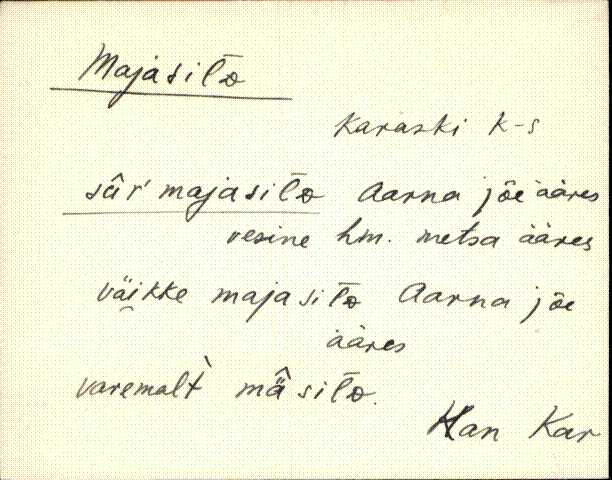 Majasitō
Karaski k-s
sâr' majasitō Aarna jõe ääres
vesine hm. metsa ääres
väikke majasitō Aarna jõe
ääres
varemalt̀ mä̂sitō.
Han Kar